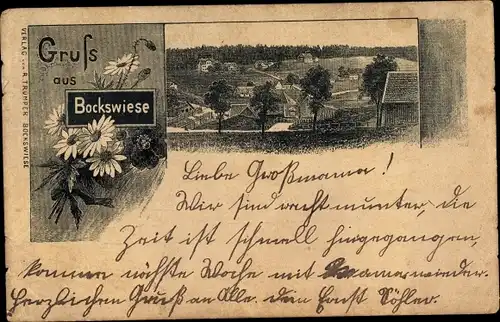 VERLAG von R. TRUMPER. BOCKSWIESE
Gruss
aus
Bockswiese
Liebe Großmama!
Wir sind recht munter, die
Zeit ist schnell hingegangen,
komme nächste Woche mit wieder.
Herzlichen Gruß an Alle. dein Ernst Köhler.